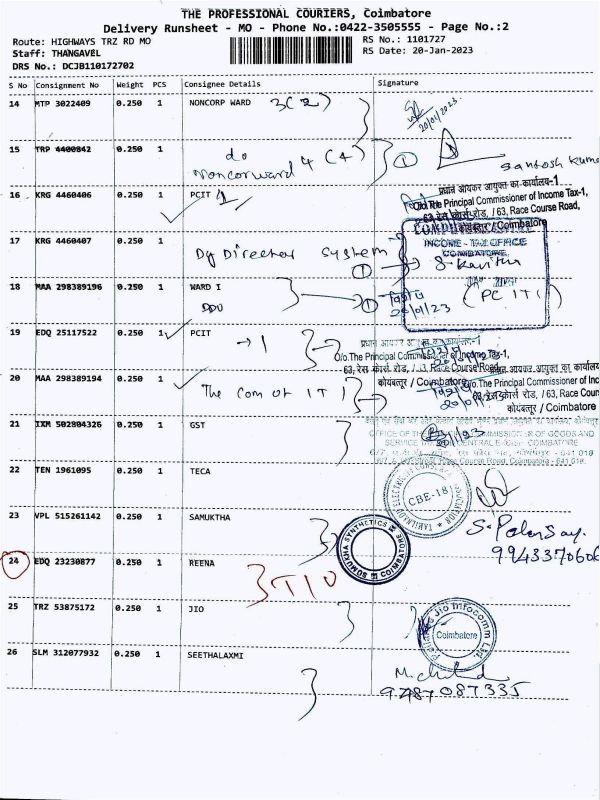 THE PROFESSIONAL COURIERS, Coimbatore
Delivery Runsheet - MO - Phone No.:0422-3505555 - Page No.:2
Route: HIGHWAYS TRZ RD MO
RS No.: 1101727
Staff: THANGAVEL
RS Date: 20-Jan-2023
DRS No.: DCJB110172702
S No Consignment No Weight PCS Consignee Details Signature
14 MTP 3022409 0.250 1 NONCORP WARD 3(2)
20/01/2023
15 TRP 4400842 0.250 1 do
Noncorward 4 (4) 1 Santosh Kuma
16 KRG 4460406 0.250 1 PCIT 1
प्रधान आयकर आयुक्त का-कार्यालय-1
O/o.The Principal Commissioner of Income Tax-1,
63, रेस कोर्स रोड, / 63, Race Course Road,
कोयंबत्तूर / Coimbatore
17 KRG 4460407 0.250 1 Dy Director System
1
INCOME - TAX OFFICE
COIMBATORE
S. Kavitha
18 MAA 298389196 0.250 1 WARD I
DDO
1
20/1/23
(PC IT 1)
19 EDQ 25117522 1 PCIT → 1
O/o.The Principal Commissioner of Income Tax-1,
63, रेस कोर्स रोड, / 63, Race Course Road,
कोयंबत्तूर / Coimbatore
20 MAA 298389194 0.250 1 The Com of IT 1
O/o.The Principal Commissioner of Inc
63, रेस कोर्स रोड, / 63, Race Cours
कोयंबत्तूर / Coimbatore
21 IXM 502804326 0.250 1 GST
22 TEN 1961095 0.250 1 TECA
TAMILNADU ELECTRICITY CONSUMERS ASSOCIATION
CBE-18
23 VPL 515261142 0.250 1 SAMUKTHA
SOMUKHA SYNTHETICS COIMBATORE
9943370606
24 EDQ 23230877 0.250 1 REENA
TIO
25 TRZ 53875172 0.250 1 JIO
Jio Infocomm Ltd.
Coimbatore
26 SLM 312077932 0.250 1 SEETHALAXMI
9787087335